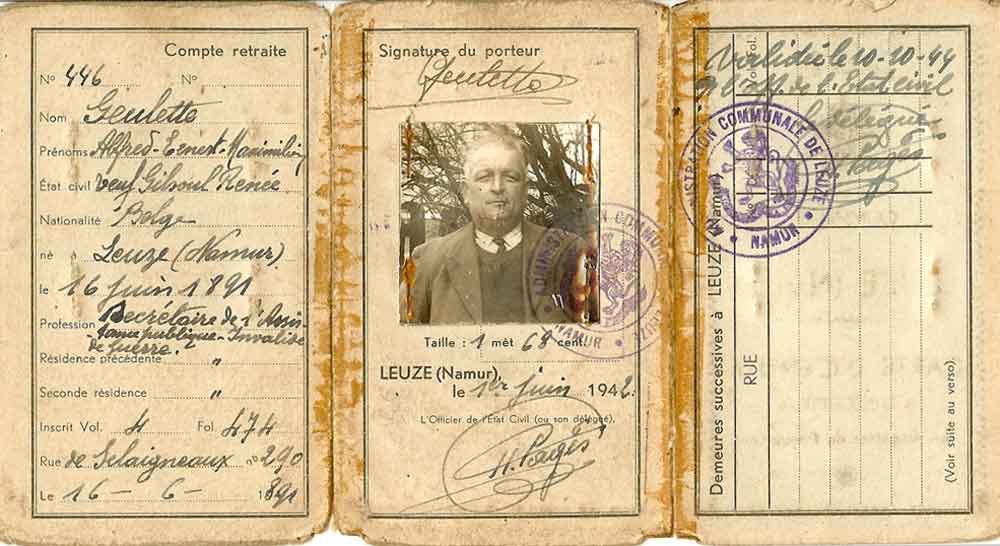 Compte retraite
No 446 No
Nom Geulette
Prénoms Alfred-Ernest-Maximilien
État civil Veuf Gilsoul Renée
Nationalité Belge
né à Leuze (Namur)
le 16 juin 1891
Profession Secrétaire de l'Assis-
tance publique - Invalide
de guerre.
Résidence précédente "
Seconde résidence "
Inscrit Vol. 4 Fol. 474
Rue de Selaigneaux no 290
Le 16 - 6 - 1891
Signature du porteur
Geulette
ADMINISTRATION COMMUNALE DE LEUZE
NAMUR
Taille : 1 mèt 68 cent.
LEUZE (Namur),
le 1er juin 1942.
L'Officier de l'État Civil (ou son délégué),
H. Pagès
Validé le 10-10-44
l'off. de l'Etat civil
le délégué
H. Pagès
ADMINISTRATION COMMUNALE DE LEUZE
NAMUR
Demeures successives à LEUZE (Namur)
RUE
Vol. Fol.
(Voir suite au verso).